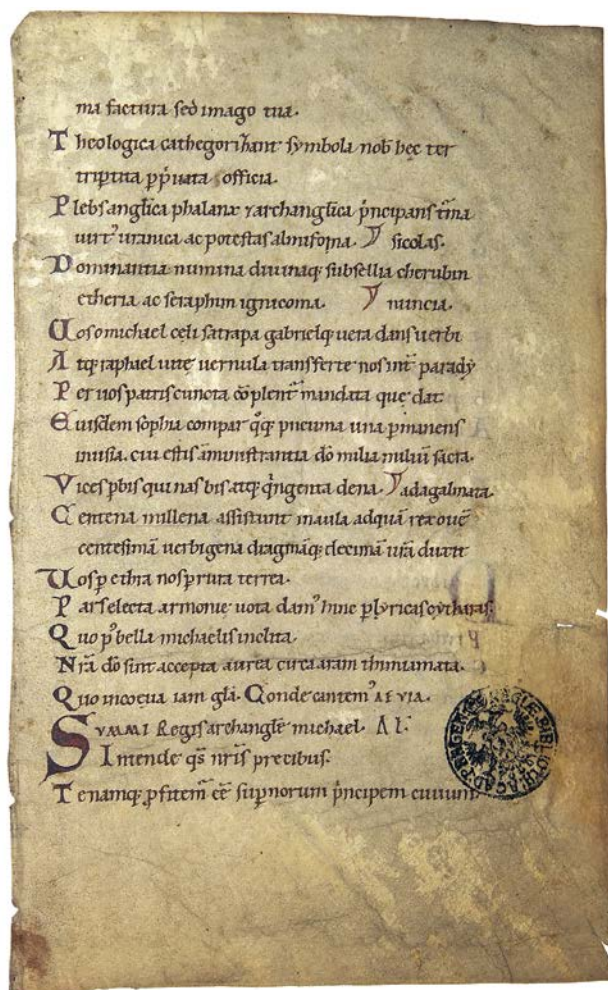 ma factura sed imago tua.
Theologica cathegorizant symbola nob hec ter
tripertita p puata officia.
Plebs anglica phalanx ⁊ archanglica pncipans tma
uirt᾽ uranica ac potestas almifoma. sicolas.
Dominantia numina diuinaq; subsellia cherubin
etheria ac seraphim ignicoma. nuncia.
Uos o michael celi satrapa gabrielq; uera dans uerbi
Atq; raphael uite uernula transferte nos int parady
Per uos patris cuncta cōplent mandata que dat
Euisdem sophia compar qq; pneuma una pmanens
inusia. cui estis āministrantia dō milia miliū sacra.
Vices p bis quinas bis atq; qngenta dena. adagalmata.
Centena millena assistunt in aula ad quā rex ouē
centesimā uerbigena dragmāq; decimā urā duxit
Uos p ethra nos p rura terrea.
Pars electa armonie uota dam᾽ hinc p lyricas cytharas.
Quo p᾽ bella michaelis inclita.
Nrā dō sint accepta aurea circa aram thimiamata.
Quo in coeua iam glā. Conde cantem᾽ AEVIA.
SUMMI Regis archangle michael. AL.
Intende qs nris precibus.
Te namq; pfitem ēē supnorum pncipem ciuium